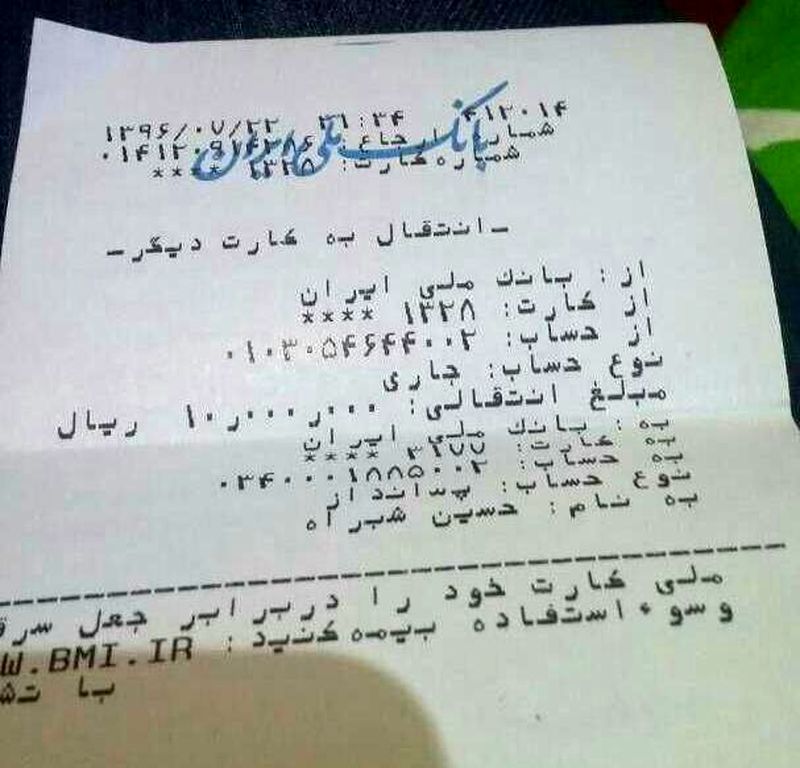 ۱۳۹۶/۰۷/۲۲ ۲۱:۳۴ ۴۱۲۰۱۴
بانک ملی ایران
شماره ارجاع:
شماره کارت: ۱۳۲۸ ****
-انتقال به کارت دیگر-
از: بانک ملی ایران
از کارت: ۱۳۲۸ ****
از حساب: ۰۱۰۳۰۵۴۶۴۴۰۰۲
نوع حساب: جاری
مبلغ انتقالی: ۱۰٫۰۰۰٫۰۰۰ ریال
به: بانک ملی ایران
به کارت: ۳۲۷۷ ****
به حساب: ۰۳۴۰۰۰۱۸۸۵۰۰۲
نوع حساب: پس انداز
به نام: حسین شبر اه
ملی کارت خود را دربرابر جعل سرق
وسوء استفاده بیمه کنید: W.BMI.IR
با تش